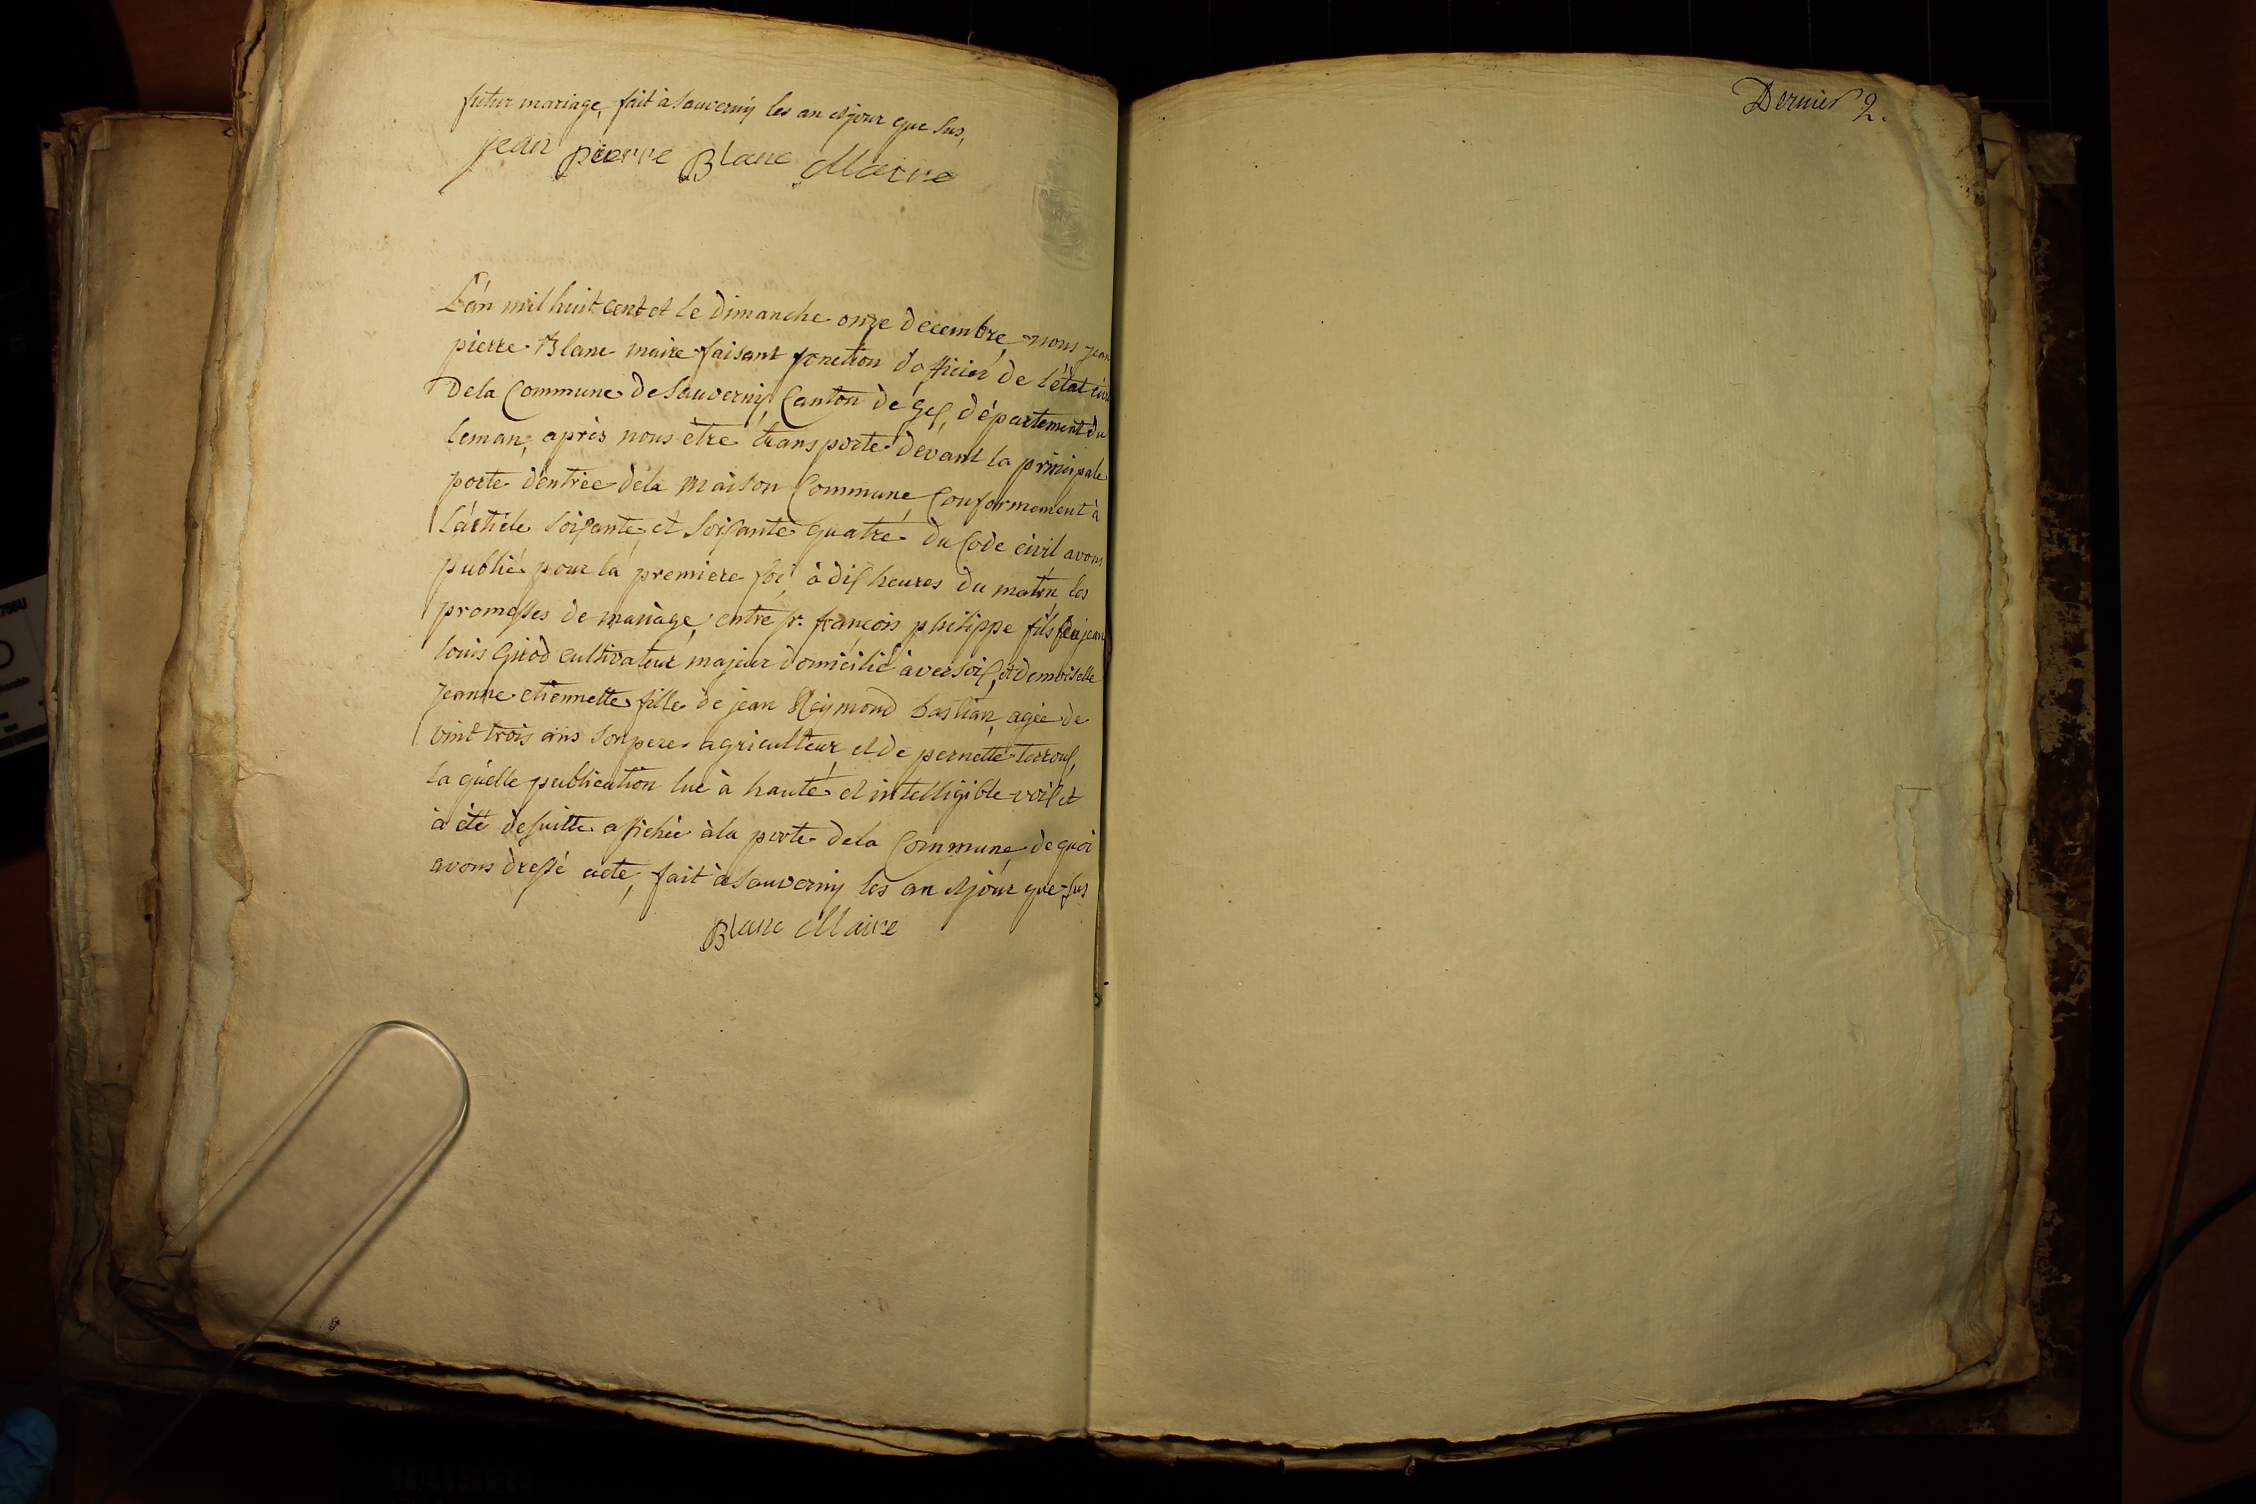 futur mariage, fait à Sauverny les an et jour que sus,
jean pierre Blanc Maire
L'an mil huit cent et le dimanche onze decembre, nous jean
pierre Blanc maire faisant fonction d'officier de l'état civil
de la Commune de Sauverny, Canton de gex, département du
leman, après nous être transporté devant la principale
porte d'entrée de la maison Commune, Conformement à
l'article soixante et soixante quatre du Code civil avons
publié pour la premiere foi, à dix heures du matin les
promesses de mariage, entre Sr. françois philippe fils feu jean
louis Girod cultivateur majeur domicilié à versoix, et demoiselle
jeanne etiennette fille de jean Reymond bastian, agée de
vint trois ans son pere agriculteur, et de pernette terroux,
la quelle publication lue à haute et intelligible voix et
à été desuitte affichée à la porte de la Commune, de quoi
avons dressé acte, fait à Sauverny les an et jour que sus
Blanc Maire
Dernier 2.